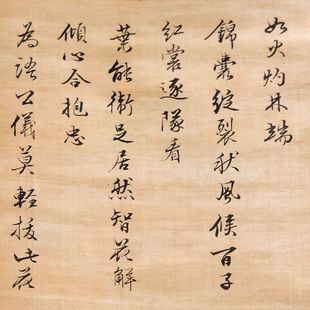 如火灼林端
錦囊綻裂秋風候百子
紅裳逐隊看
葉能衛足居然智花解
傾心合抱忠
為語公儀莫輕拔此花